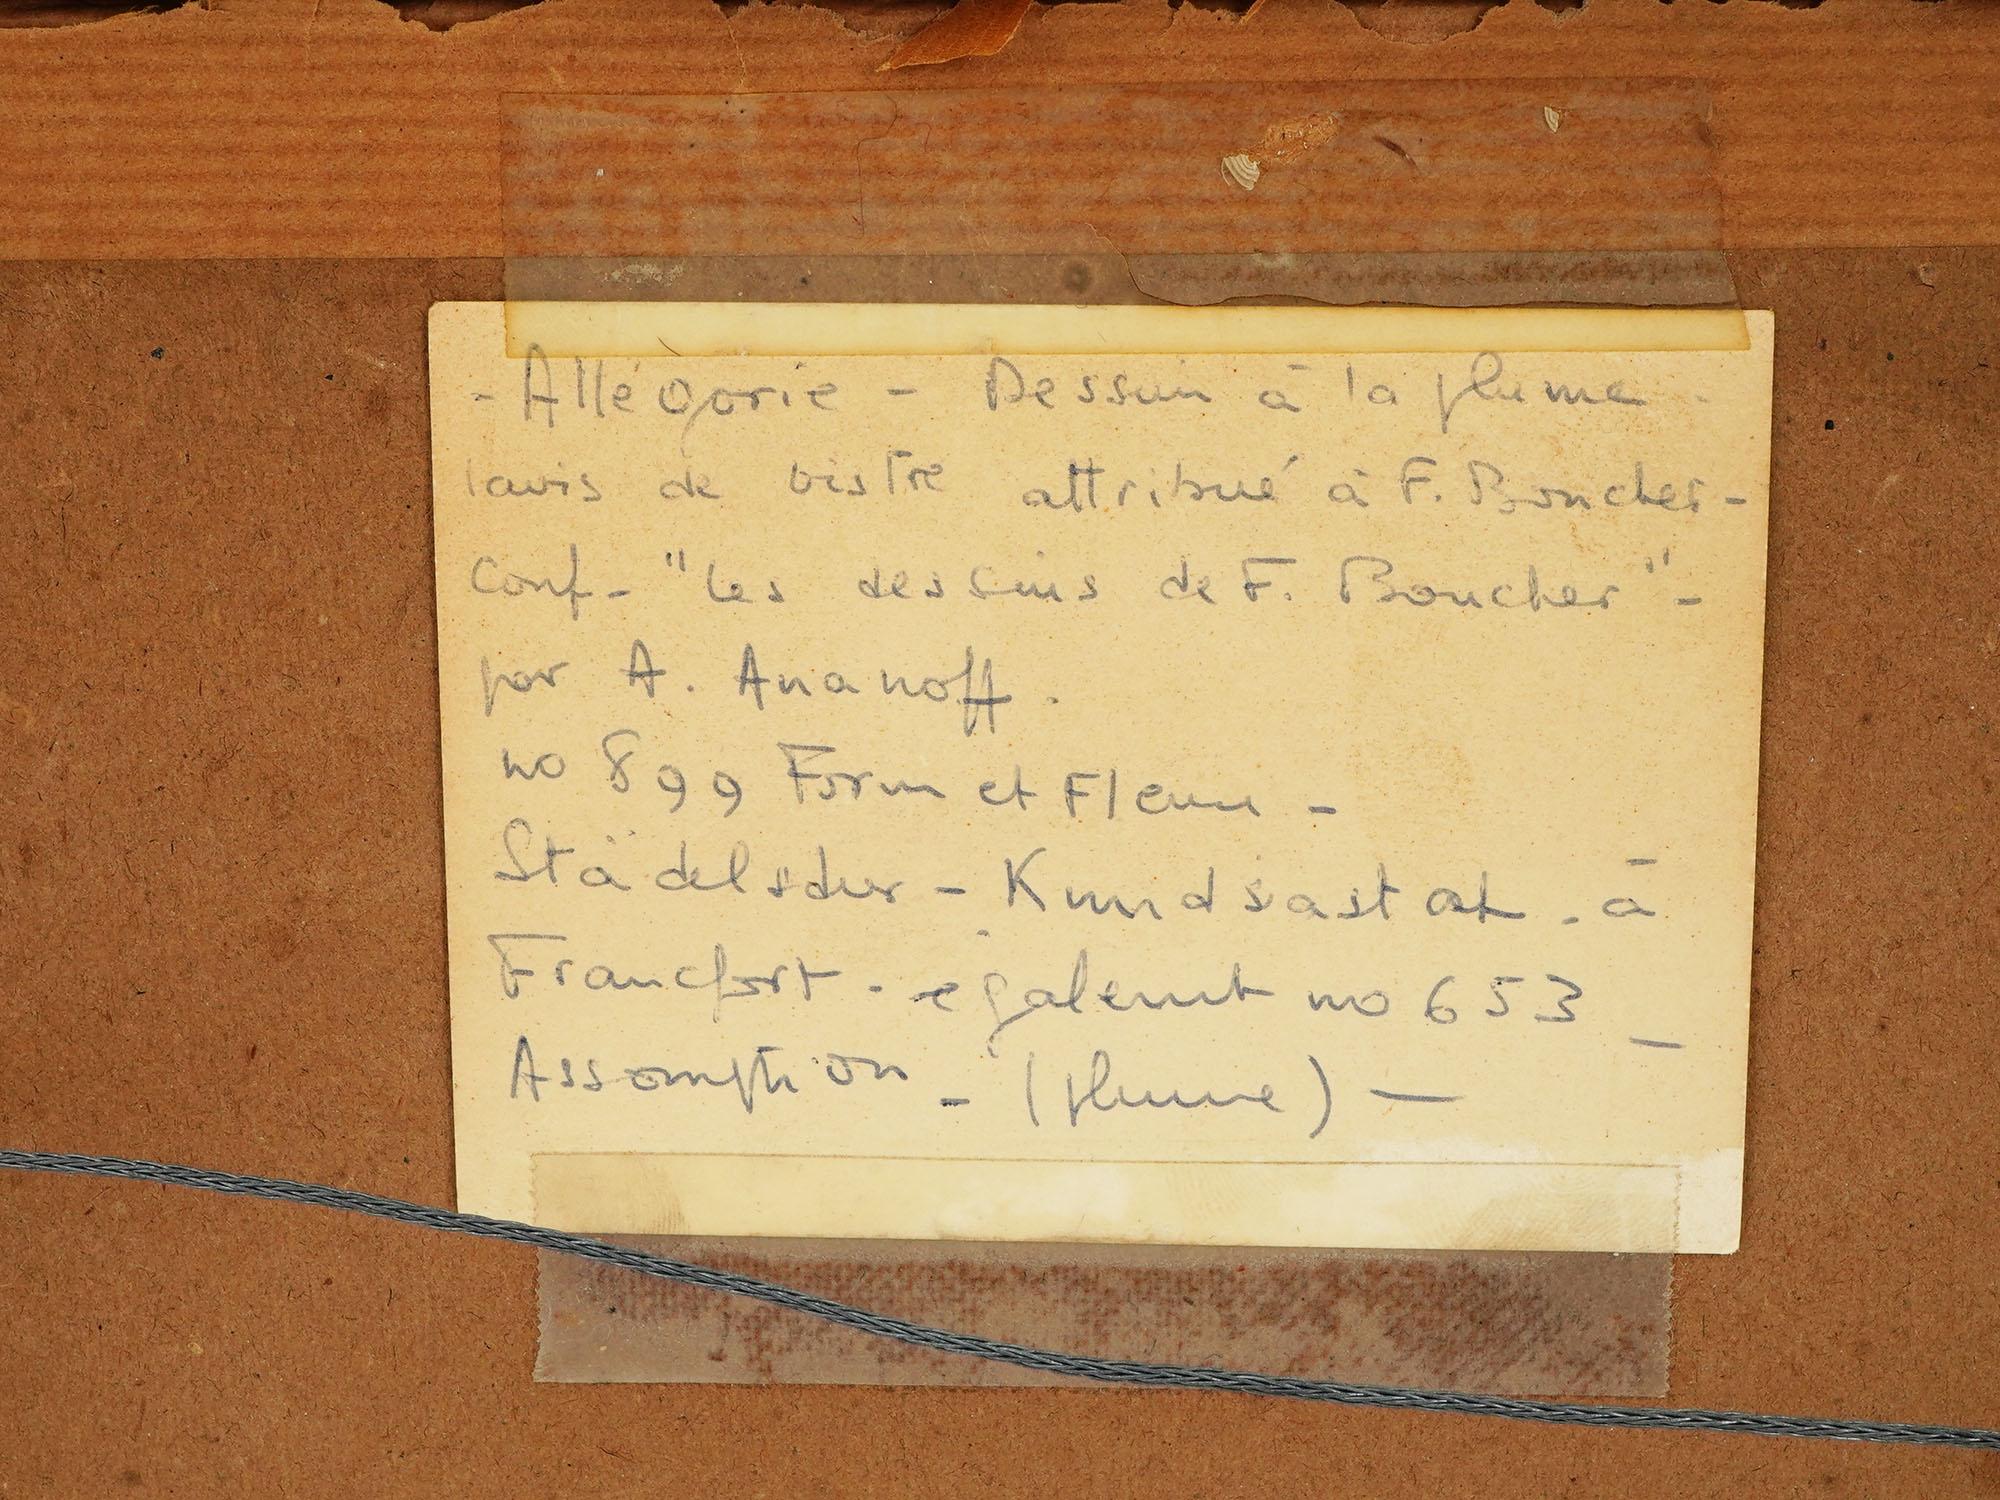 - Allégorie - Dessin à la plume -
lavis de bistre attribué à F. Boucher -
Conf - "Les dessins de F. Boucher" -
par A. Ananoff.
no 899 Form et Fleuve -
Städelsder - Kundsastat - à
Francfort - égalemt no 653 -
Assomption - (plume) -